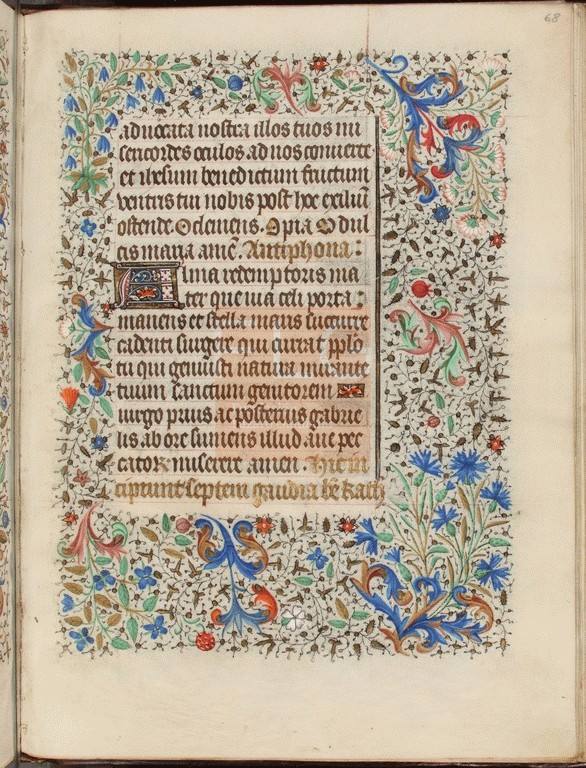 68
aduocata nostra illos tuos mi
sericordes oculos ad nos conuerte
et ihesum benedictum fructum
ventris tui nobis post hoc exiliū
ostende O clemens. O pia O dul
cis maria amē. Antiphona:
Alma redemptoris ma
ter que ꝑuia celi porta
manens et stella maris succurre
cadenti surgere qui curat pplo
tu que genuisti natura mirante
tuum sanctum genitorem
uirgo prius ac posterius gabrie
lis ab ore sumens illud aue pec
catoꝝ miserere amen. Hic in
cipiunt septem gaudia bē